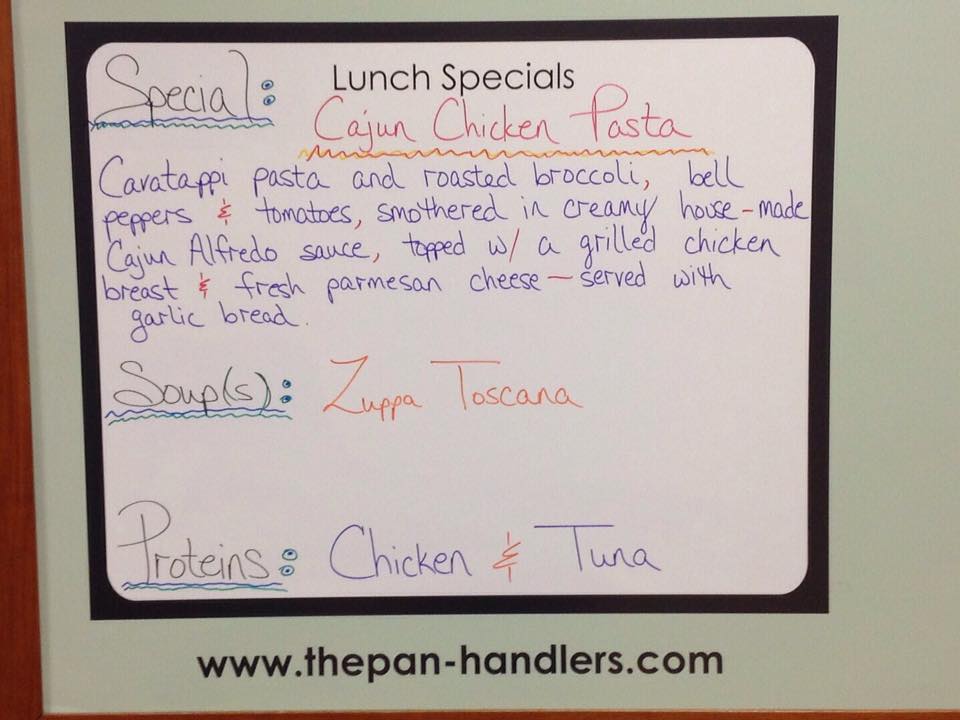 Lunch Specials
Special:
Cajun Chicken Pasta
Cavatappi pasta and roasted broccoli, bell
peppers & tomatoes, smothered in creamy house-made
Cajun Alfredo sauce, topped w/ a grilled chicken
breast & fresh parmesan cheese — served with
garlic bread.
Soup(s): Zuppa Toscana
Proteins: Chicken & Tuna
www.thepan-handlers.com